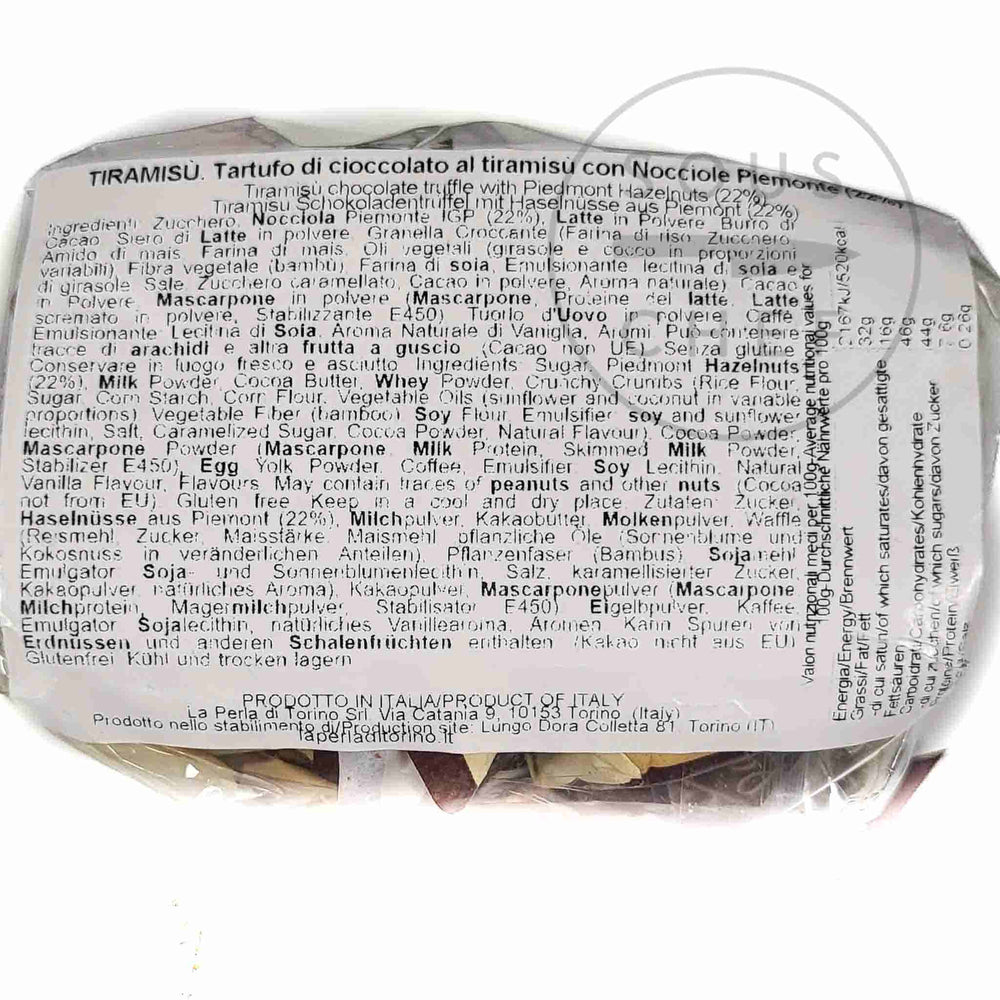 TIRAMISÙ. Tartufo di cioccolato al tiramisù con Nocciole Piemonte (22%)
Tiramisù chocolate truffle with Piedmont Hazelnuts (22%)
Tiramisu Schokoladentrüffel mit Haselnüsse aus Piemont (22%)
Ingredienti Zucchero, Nocciola Piemonte IGP (22%), Latte in Polvere Burro di
Cacao Siero di Latte in polvere, Granella Croccante (Farina di riso Zucchero
Amido di mais, Farina di mais, Oli vegetali (girasole e cocco in proporzioni
variabili), Fibra vegetale (bambù), Farina di soia, Emulsionante lecitina di soia e
di girasole Sale, Zucchero caramellato, Cacao in polvere, Aroma naturale), Cacao
in Polvere, Mascarpone in polvere (Mascarpone, Proteine del latte, Latte
scremato in polvere, Stabilizzante E450) Tuorlo d'Uovo in polvere, Caffè
Emulsionante Lecitina di Soia, Aroma Naturale di Vaniglia, Aromi Può contenere
tracce di arachidi e altra frutta a guscio (Cacao non UE) Senza glutine
Conservare in luogo fresco e asciutto Ingredients Sugar, Piedmont Hazelnuts
(22%), Milk Powder, Cocoa Butter, Whey Powder, Crunchy Crumbs (Rice Flour,
Sugar, Corn Starch, Corn Flour, Vegetable Oils (sunflower and coconut in variable
proportions) Vegetable Fiber (bamboo) Soy Flour, Emulsifier soy and sunflower
lecithin, Salt, Caramelized Sugar, Cocoa Powder, Natural Flavour), Cocoa Powder,
Mascarpone Powder (Mascarpone, Milk Protein, Skimmed Milk Powder,
Stabilizer E450), Egg Yolk Powder, Coffee, Emulsifier Soy Lecithin, Natural
Vanilla Flavour, Flavours May contain traces of peanuts and other nuts (Cocoa
not from EU) Gluten free Keep in a cool and dry place Zutaten Zucker,
Haselnüsse aus Piemont (22%), Milchpulver, Kakaobutter, Molkenpulver, Waffle
(Reismehl, Zucker, Maisstärke, Maismehl pflanzliche Öle (Sonnenblume und
Kokosnuss in veränderlichen Anteilen), Pflanzenfaser (Bambus), Sojamehl
Emulgator Soja- und Sonnenblumenlecithin, Salz, karamellisierter Zucker,
Kakaopulver, natürliches Aroma), Kakaopulver, Mascarponepulver (Mascarpone
Milchprotein, Magermilchpulver, Stabilisator E450) Eigelbpulver, Kaffee,
Emulgator Sojalecithin, natürliches Vanillearoma, Aromen Kann Spuren von
Erdnüssen und anderen Schalenfrüchten enthalten (Kakao nicht aus EU)
Glutenfrei Kühl und trocken lagern
PRODOTTO IN ITALIA/PRODUCT OF ITALY
La Perla di Torino Srl Via Catania 9, 10153 Torino (Italy)
Prodotto nello stabilimento di/Production site: Lungo Dora Colletta 81 Torino (IT)
laperladitorino.it
Valori nutrizionali medi per 100g-Average nutritional values for
100g-Durchschnittliche Nährwerte pro 100g
Energia/Energy/Brennwert 2167kJ/520kcal
Grassi/Fat/Fett 32g
-di cui saturi/of which saturates/davon gesättigte 16g
Fettsäuren
Carboidrati/Carbohydrates/Kohlenhydrate 46g
-di cui zuccheri/of which sugars/davon Zucker 44g
Proteine/Protein/Eiweiß 6g
0.26g
SOUS
CHEF